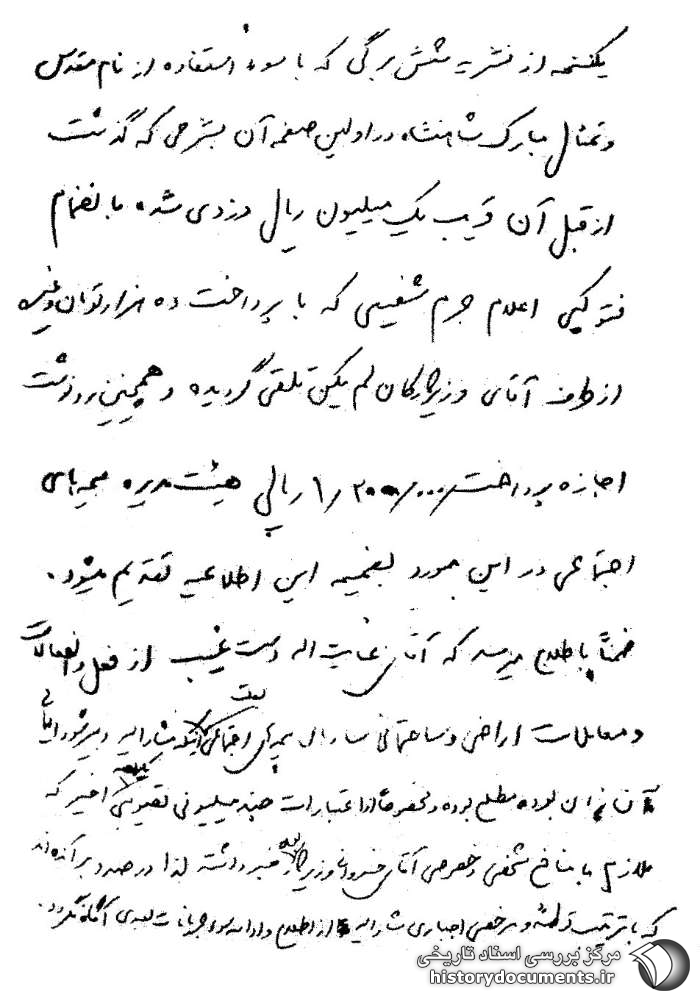 یکنسخه از نشریه شش برگی که با سوء استفاده از نام مقدس
و تمثال مبارک شاهنشاه در اولین صفحه آن بشرحی که گذشت
از قبل آن قریب یک میلیون ریال دزدی شده بانضمام
فتوکپی اعلام جرم شفیعی که با پرداخت ده هزار تومان وغیره
از طرف آقای وزیر کان لم یکن تلقی گردیده و همچنین رونوشت
اجازه پرداخت ۱/۲۰۰/۰۰۰ ریالی هیئت مدیره بیمه های
اجتماعی در این مورد بضمیمه این اطلاعیه تقدیم میشود .
ضمناً باطلاع میرسد که آقای عنایت اله دست غیب از فعل وانفعالات
و معاملات اراضی و ساختمانی سازمان بیمه های اجتماعی بعلت اینکه مشارالیه دبیر شورایعالی
آن بوده مطلع بوده و بخصوص از اعتبارات چند میلیونی اخیر که
ملازم با منافع شخصی و خصوصی آقای خسروانی وزیر کار خبر داشته لذا درصدد برآمده اند
که با ترتیب و مرخصی اجباری مشارالیه از اطلاع و ادامه جریانات بعدی آگاه نگردد .
مرکز بررسی اسناد تاریخی
historydocuments.ir